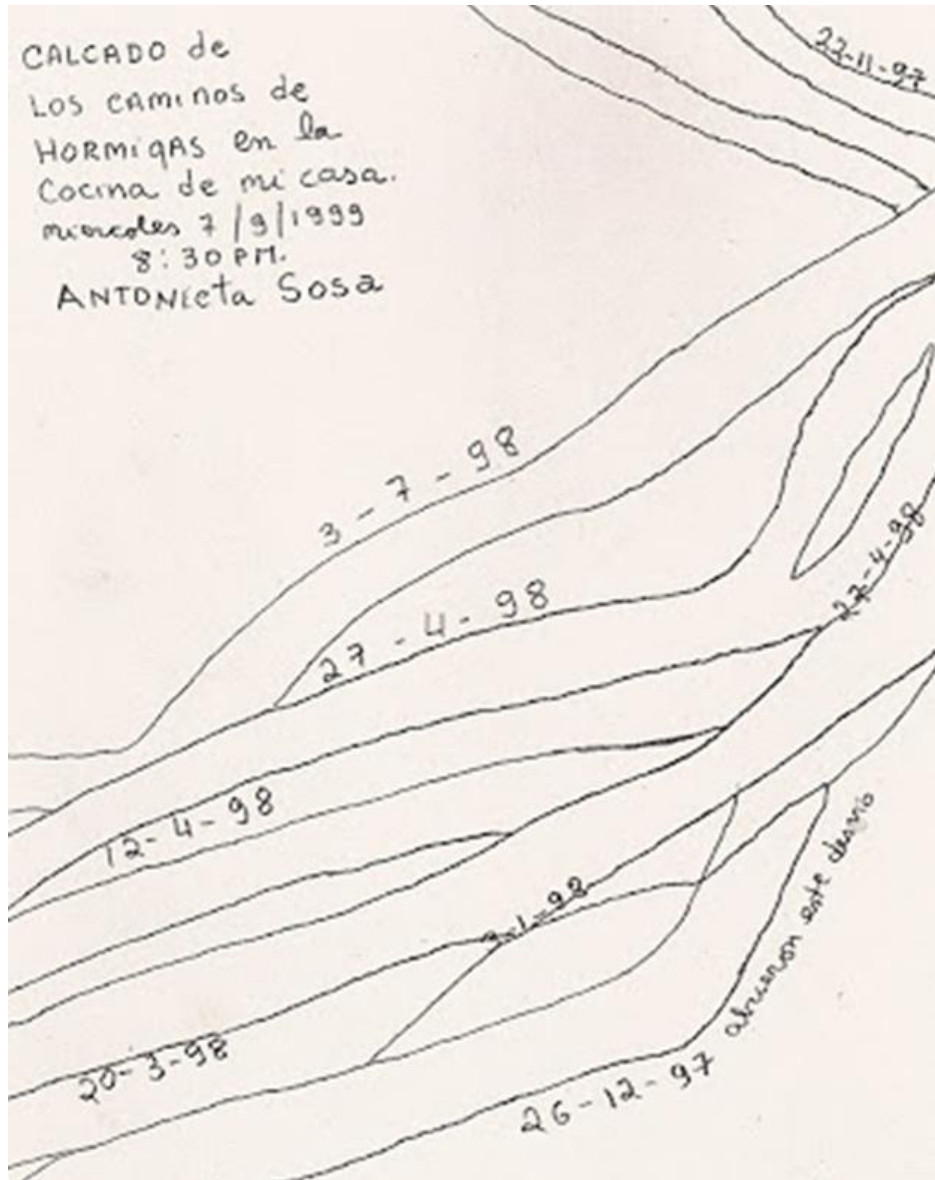 CALCADO de
LOS CAMINOS de
HORMIGAS en la
Cocina de mi casa.
miercoles 7/9/1999
8:30 PM.
ANTONIETA SOSA
22-11-97
3-7-98
27-4-98
27-4-98
12-4-98
3-1-98
20-3-98
26-12-97
abrieron este desvio